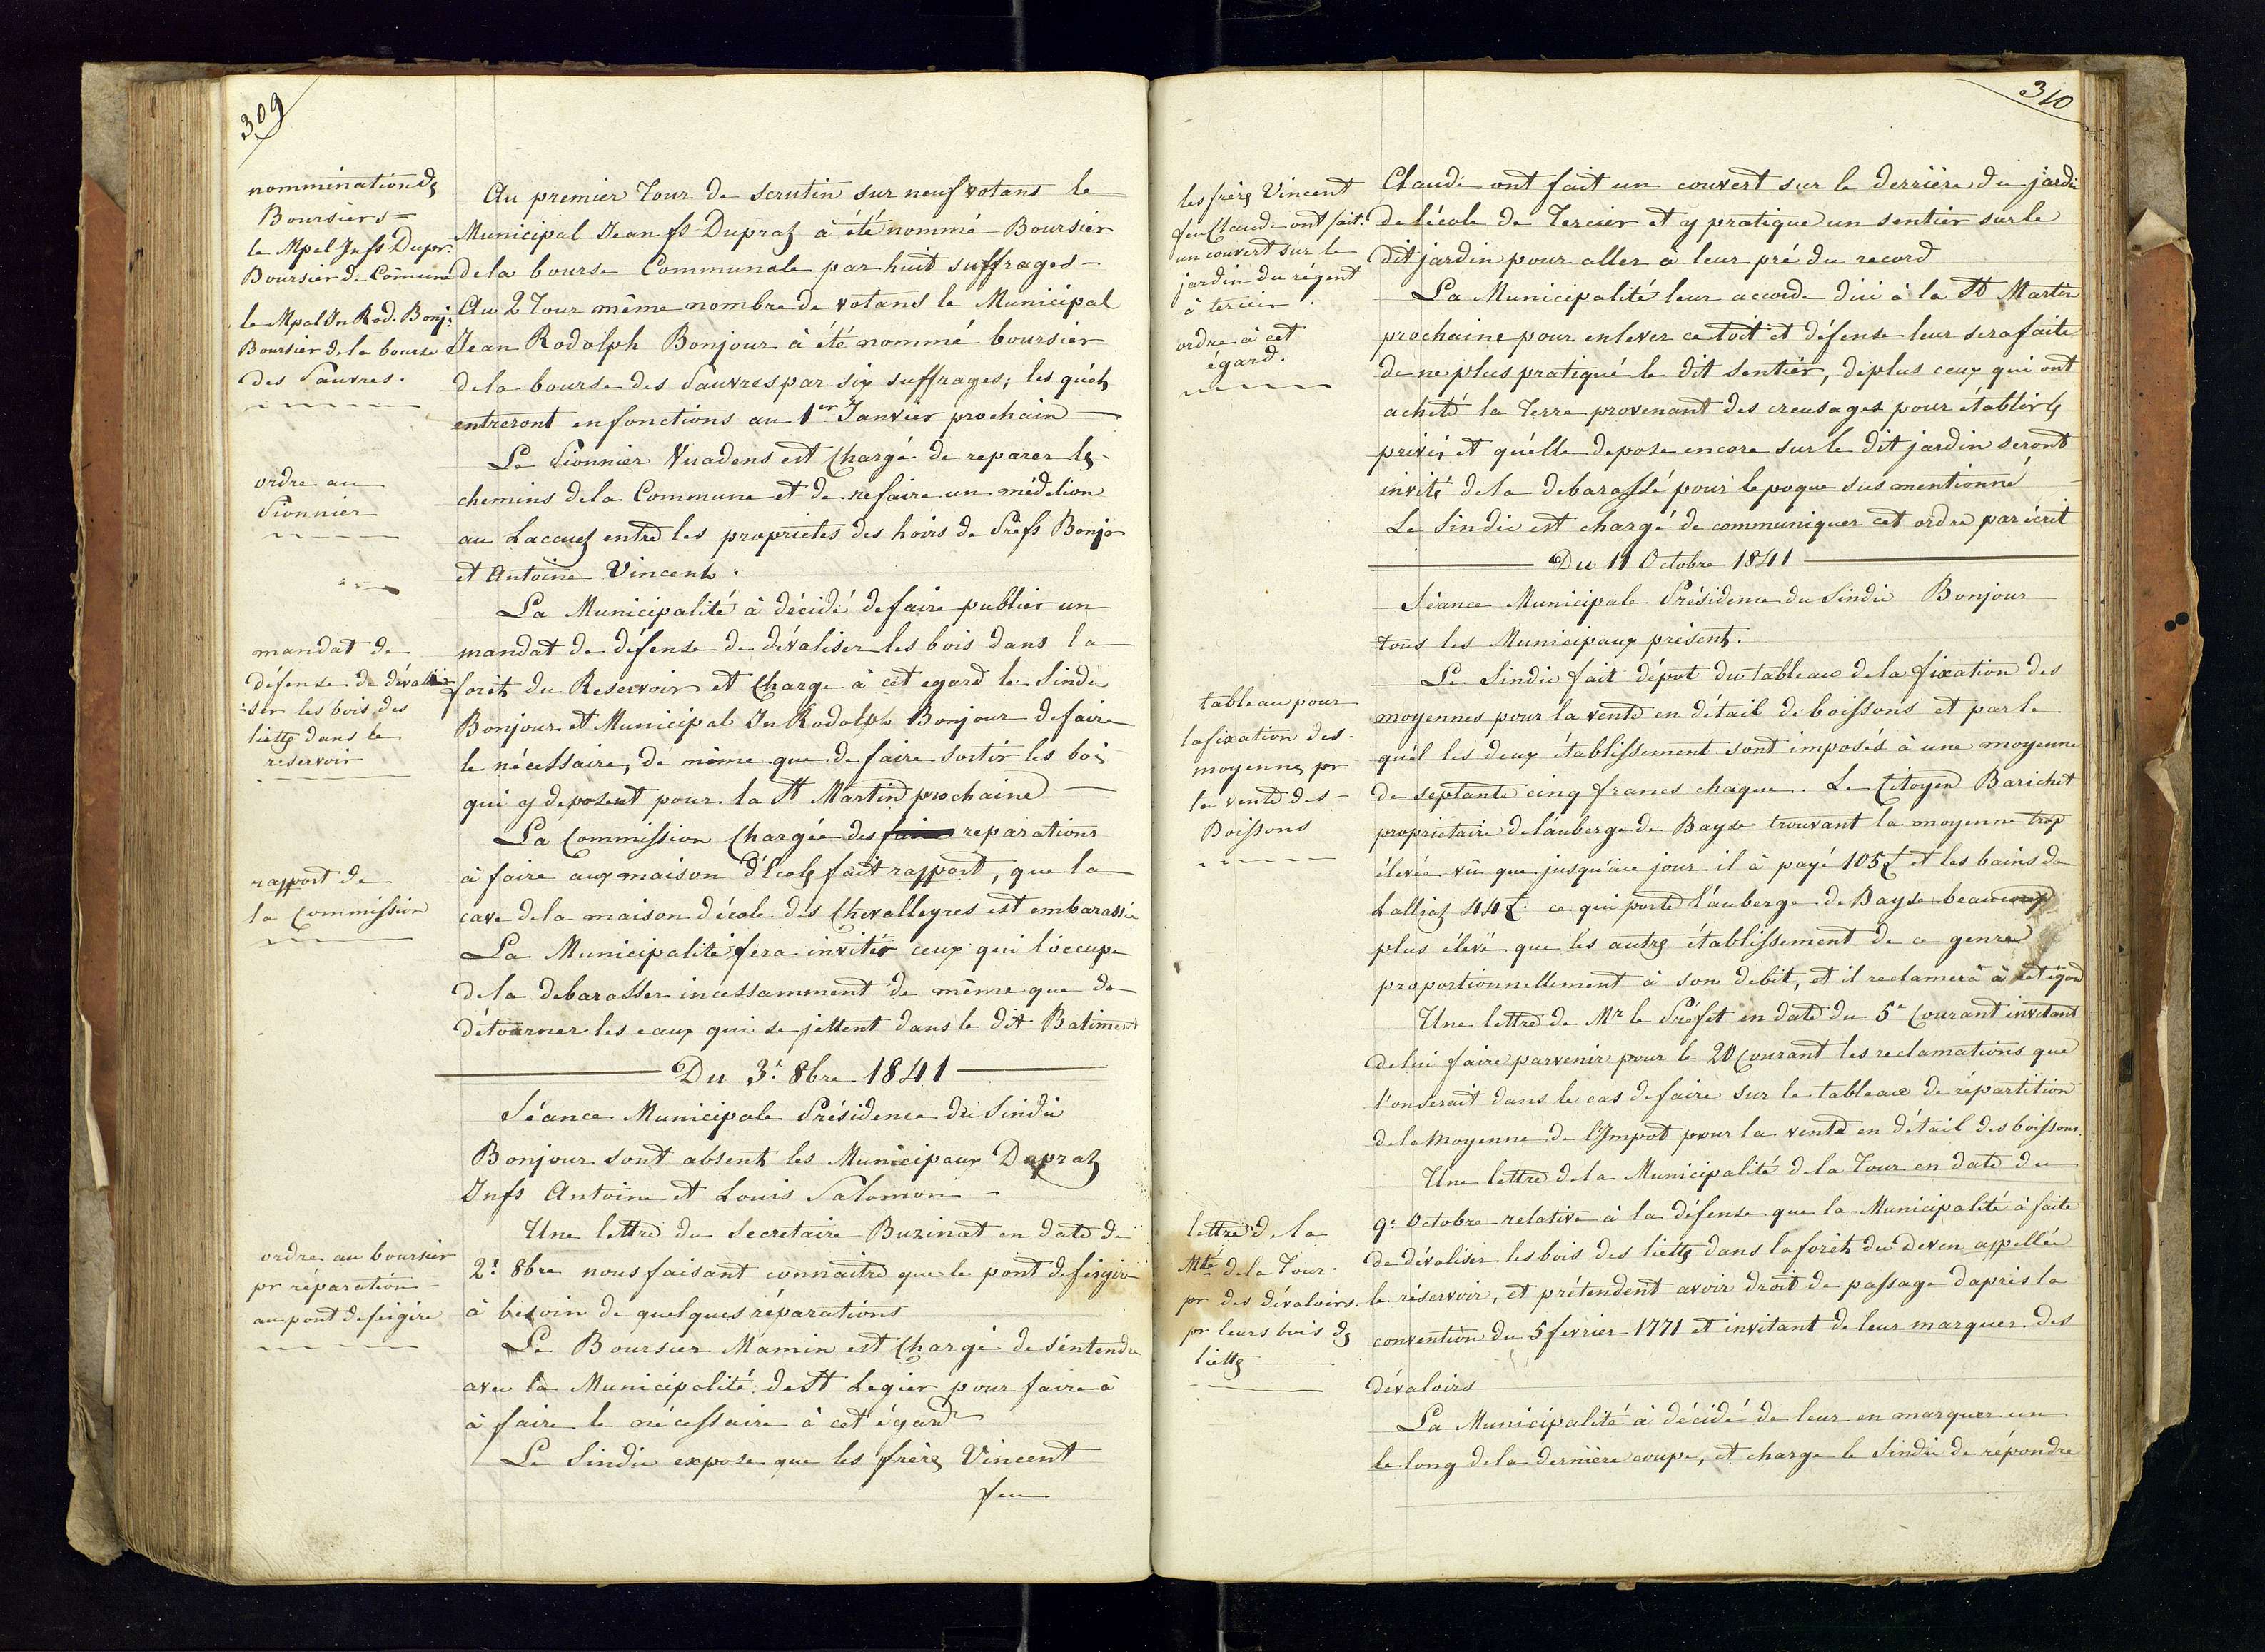 309
nommination des
Boursiers =
le Mpal Jnfs Dupr.
Boursier de Comune
le Mpal Jn Rod. Bonj.
Boursier de la bourse
des Pauvres.
Au premier Tour de scrutin sur neuf votans le
Municipal Jean fs Dupraz à été nommé Boursier
de la bourse Communale par huit suffrages -
Au 2 Tour même nombre de votans le Municipal
Jean Rodolph Bonjour à été nommé boursier
de la bourse des Pauvres par six suffrages; les quels
entreront en fonctions au 1er Janvier prochain
ordre au
Pionnier
Le Pionnier Vuadens est chargé de reparer les
chemins de la Commune et de refaire un médelion
au Lacuez entre les proprietes des hoirs de Prefs Bonjr
et Antoine Vincent.
mandat de
défense de dévali
=ser les bois des
liettes dans le
réservoir
La Municipalité à décidé de faire publier un
mandat de défense de dévaliser les bois dans la
forêt du Reservoir et charge à cet egard le Sindic
Bonjour et Municipal Jn Rodolph Bonjour de faire
le nécessaire, de même que de faire sortir les bois
qui y deposent pour la St Martin prochaine
rapport de
la Commission
La Commission chargée des faire reparations
à faire aux maison d'écoles fait rapport, que la
cave de la maison d'école des Chevalleyres est embarassée
La Municipalité fera inviter ceux qui l'occupe
de la debarasser incessamment de même que de
détourner les eaux qui se jettent dans le dit Batiment
Du 3e 8bre 1841
Séance Municipale Présidence du Sindic
Bonjour sont absent les Municipaux Dupraz
Jnfs Antoine et Louis Salomon -
ordre au boursier
pr réparation
au pont de feigire
Une lettre du Secretaire Buzinat en date de
2e 8bre nous faisant connaître que le pont de feigire
à besoin de quelques réparations
Le Boursier Mamin est chargé de s'entendre
avec la Municipalité de St Legier pour faire à
à faire le nécessaire à cet égard
Le Sindic expose que les frères Vincent
feu
310
les frères Vincent
feu Claude ont fait
un couvert sur le
jardin du régent
à tercier
ordre à cet
égard.
Claude ont fait un couvert sur le derrière du jardin
de l'école de Tercier et y pratique un sentier sur le
dit jardin pour aller à leur pré du record
La Municipalité leur accorde d'ici à la St Martin
prochaine pour enlever ce toit et défense leur sera faite
de ne plus pratiqué le dit sentier, de plus ceux qui ont
acheté la Terre provenant des creusages pour établir les
privés et qu'elle depose encore sur le dit jardin seront
invité de la debarassé pour l'epoque sus mentionné
Le Sindic est chargé de communiquer cet ordre par écrit
Du 11 Octobre 1841
Séance Municipale Présidence du Sindic Bonjour
tous les Municipaux présent.
tableau pour
la fixation des
moyennes pr
la vente des
Boissons
Le Sindic fait dépot du tableau de la fixation des
moyennes pour la vente en détail de boissons et par le
quel les deux établissement sont imposés à une moyenne
de septante cinq francs chaque. Le Citoyen Barichet
proprietaire de l'auberge de Bayse trouvant la moyenne trop
élevée vû que jusqu'à ce jour il à payé 105 L et les bains de
Lalliaz 44 L. ce qui porte l'auberge de Bayse beaucoup
plus élevé que les autres établissement de ce genre
proportionnellement à son debit, et il reclamera à cet égard
Une lettre de Mr le Préfet en date du 5e courant invitant
de lui faire parvenir pour le 20 courant les reclamations que
l'on serait dans le cas de faire sur le tableau de répartition
de la Moyenne de l'Impot pour la vente en détail des boissons.
lettre de la
Mté de la Tour
pr des dévaloirs
pr leurs bois des
liettes
Une lettre de la Municipalité de la Tour en date du
9e Octobre relative à la défense que la Municipalité à faite
de dévaliser les bois des liettes dans la forêt du deven appellée
le réservoir, et prétendent avoir droit de passage d'après la
convention du 5 fevrier 1771 et invitant de leur marquer des
dévaloirs
La Municipalité à décidé de leur en marquer un
le long de la dernière coupe, et charge le Sindic de répondre